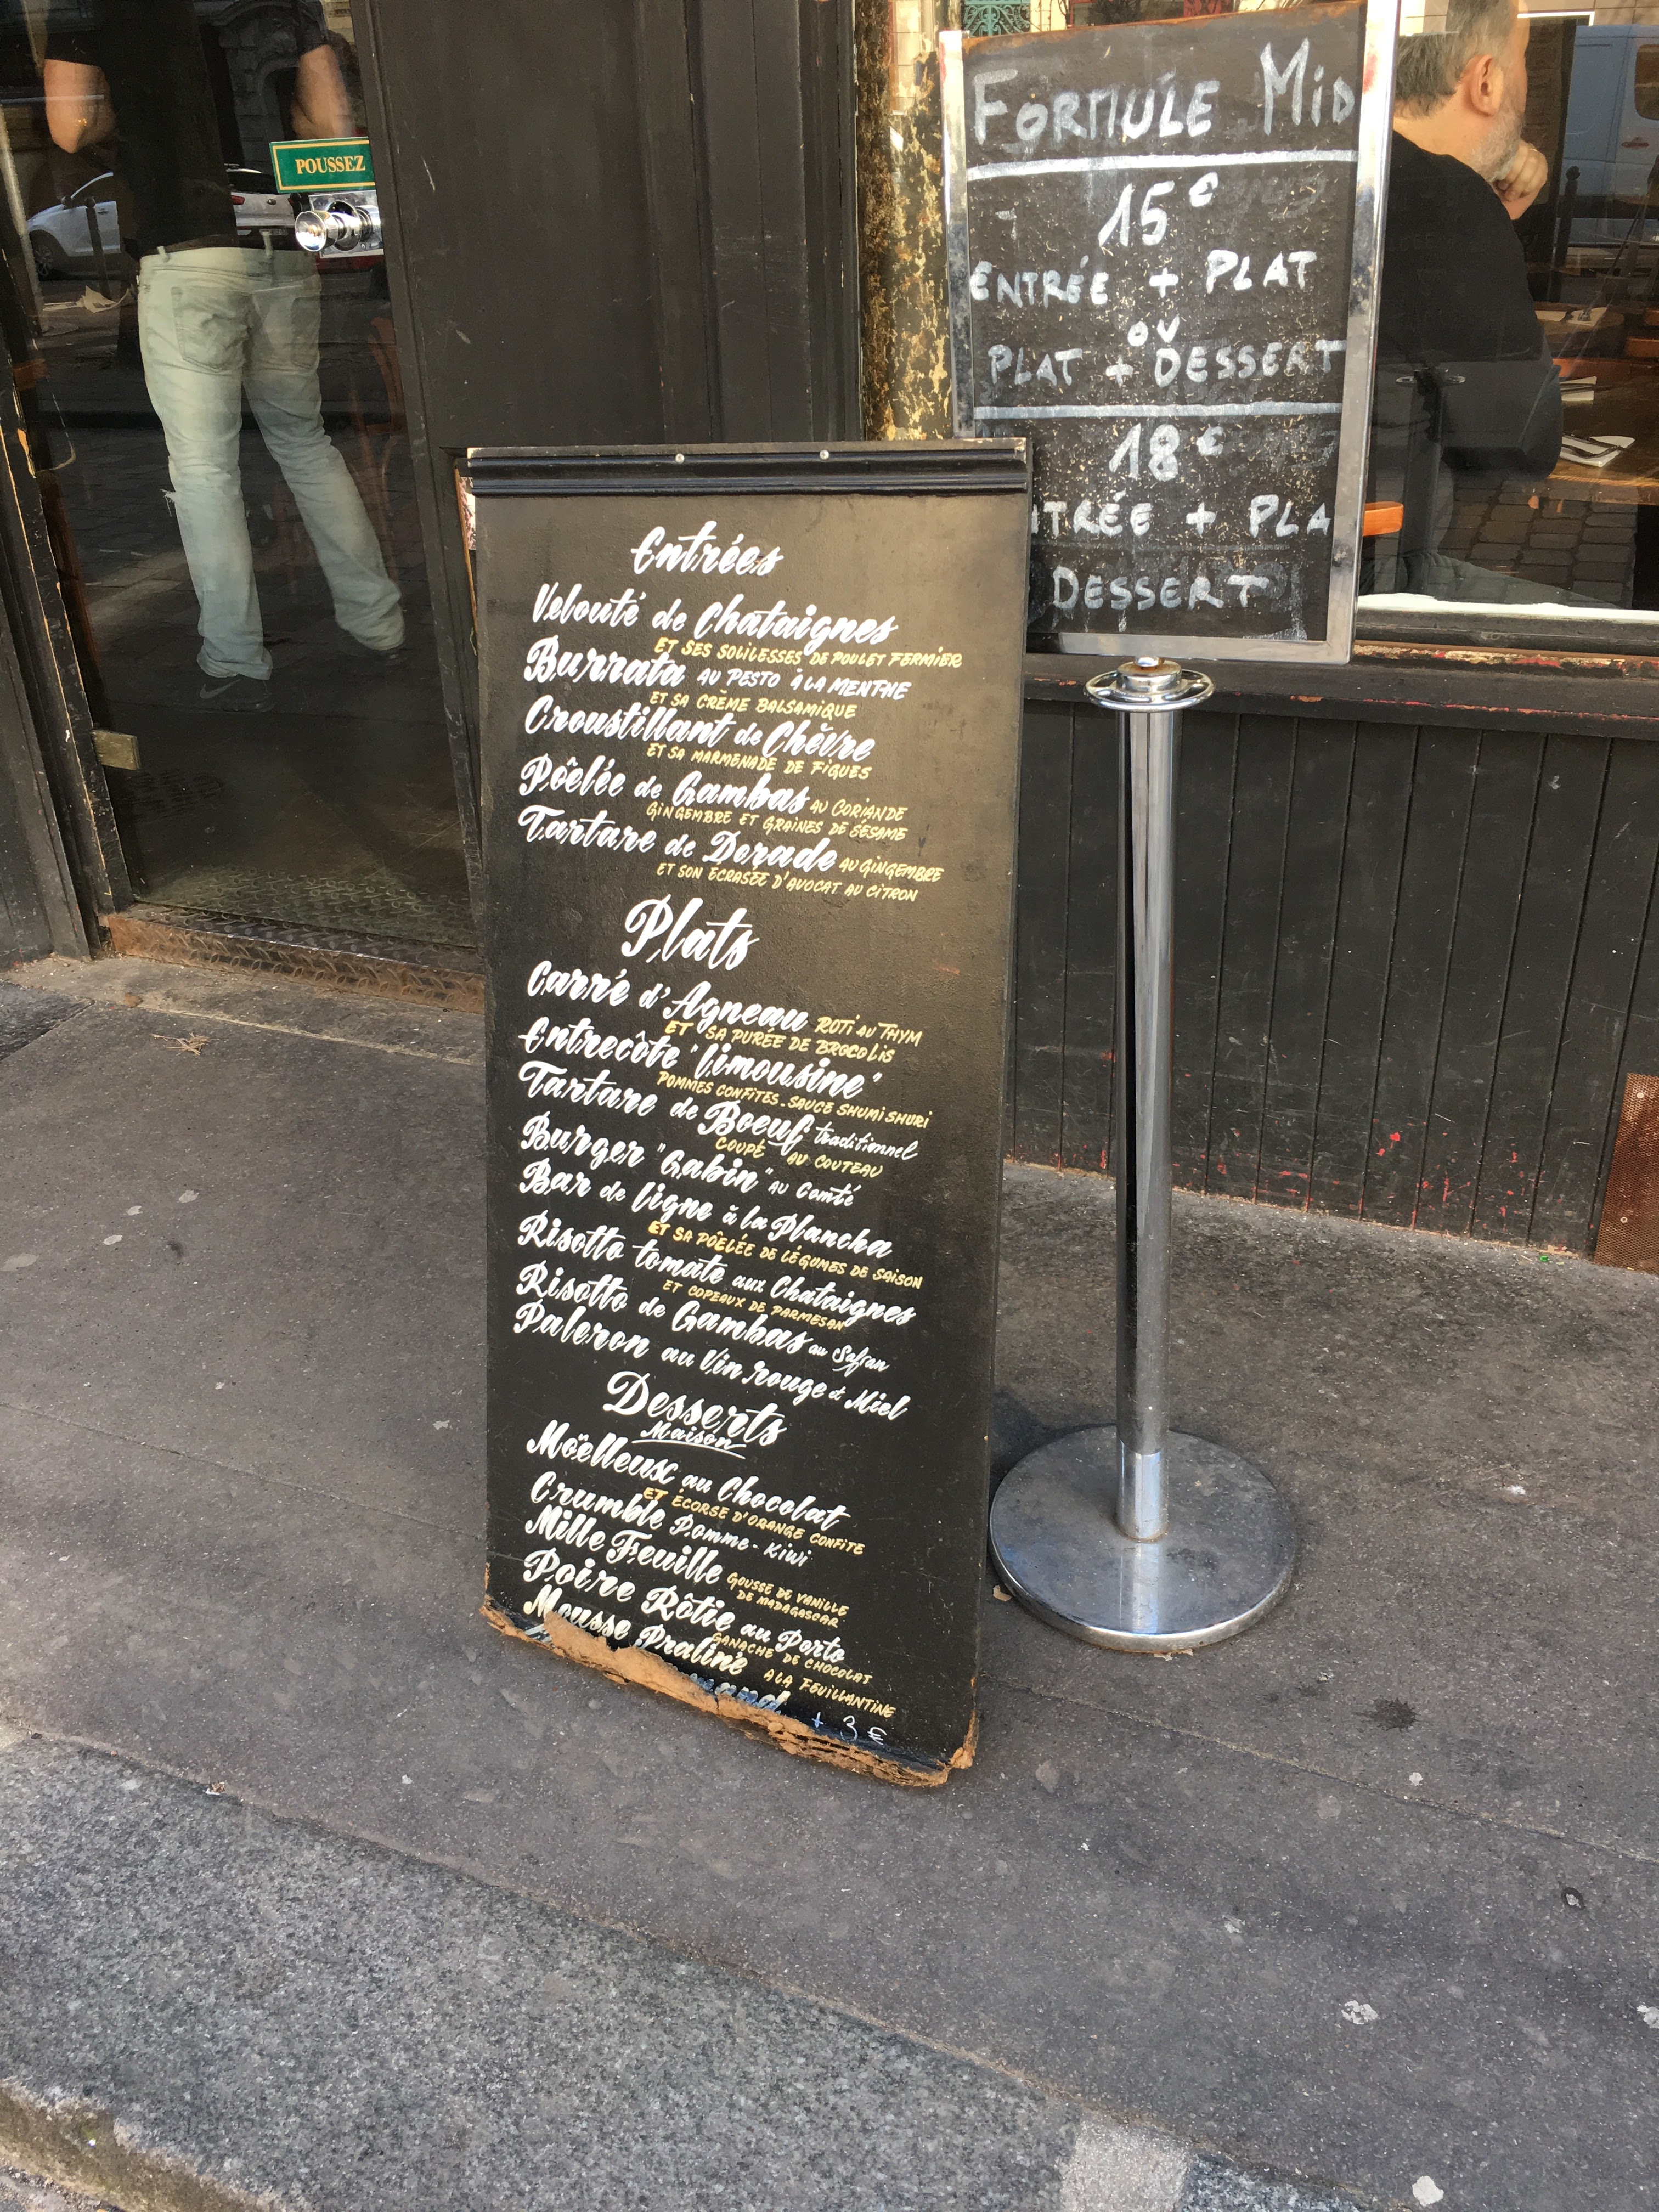 POUSSEZ
FORMULE MID
15€
ENTRÉE + PLAT
OU
PLAT + DESSERT
18€
TRÉE + PLA
DESSERT
Entrées
Velouté de Chataignes
ET SES SOLILESSES DE POULET FERMIER
Burrata AU PESTO A LA MENTHE
ET SA CRÈME BALSAMIQUE
Croustillant de Chèvre
ET SA MARMENADE DE FIGUES
Pôelée de Gambas AU CORIANDE
GINGEMBRE ET GRAINES DE SÉSAME
Tartare de Dorade AU GINGEMBRE
ET SON ECRASÉE D'AVOCAT AU CITRON
Plats
Carré d'Agneau ROTI AU THYM
ET SA PURÉE DE BROCOLIS
Entrecôte "Limousine"
POMMES CONFITES - SAUCE SHUMI SHURI
Tartare de Boeuf traditionnel
COUPÉ AU COUTEAU
Burger "Gabin" AU Comté
Bar de ligne à la Plancha
ET SA PÔELÉE DE LÉGUMES DE SAISON
Risotto tomate aux Chataignes
ET COPEAUX DE PARMESAN
Risotto de Gambas au Safran
Paleron au Vin rouge & Miel
Desserts
Maison
Moëlleux au Chocolat
ET ÉCORSE D'ORANGE CONFITE
Crumble Pomme - Kiwi
Mille Feuille GOUSSE DE VANILLE
DE MADAGASCAR
Poire Rôtie au Porto
GANACHE DE CHOCOLAT
Mousse Praliné A LA FEUILLANTINE
+ 3 €